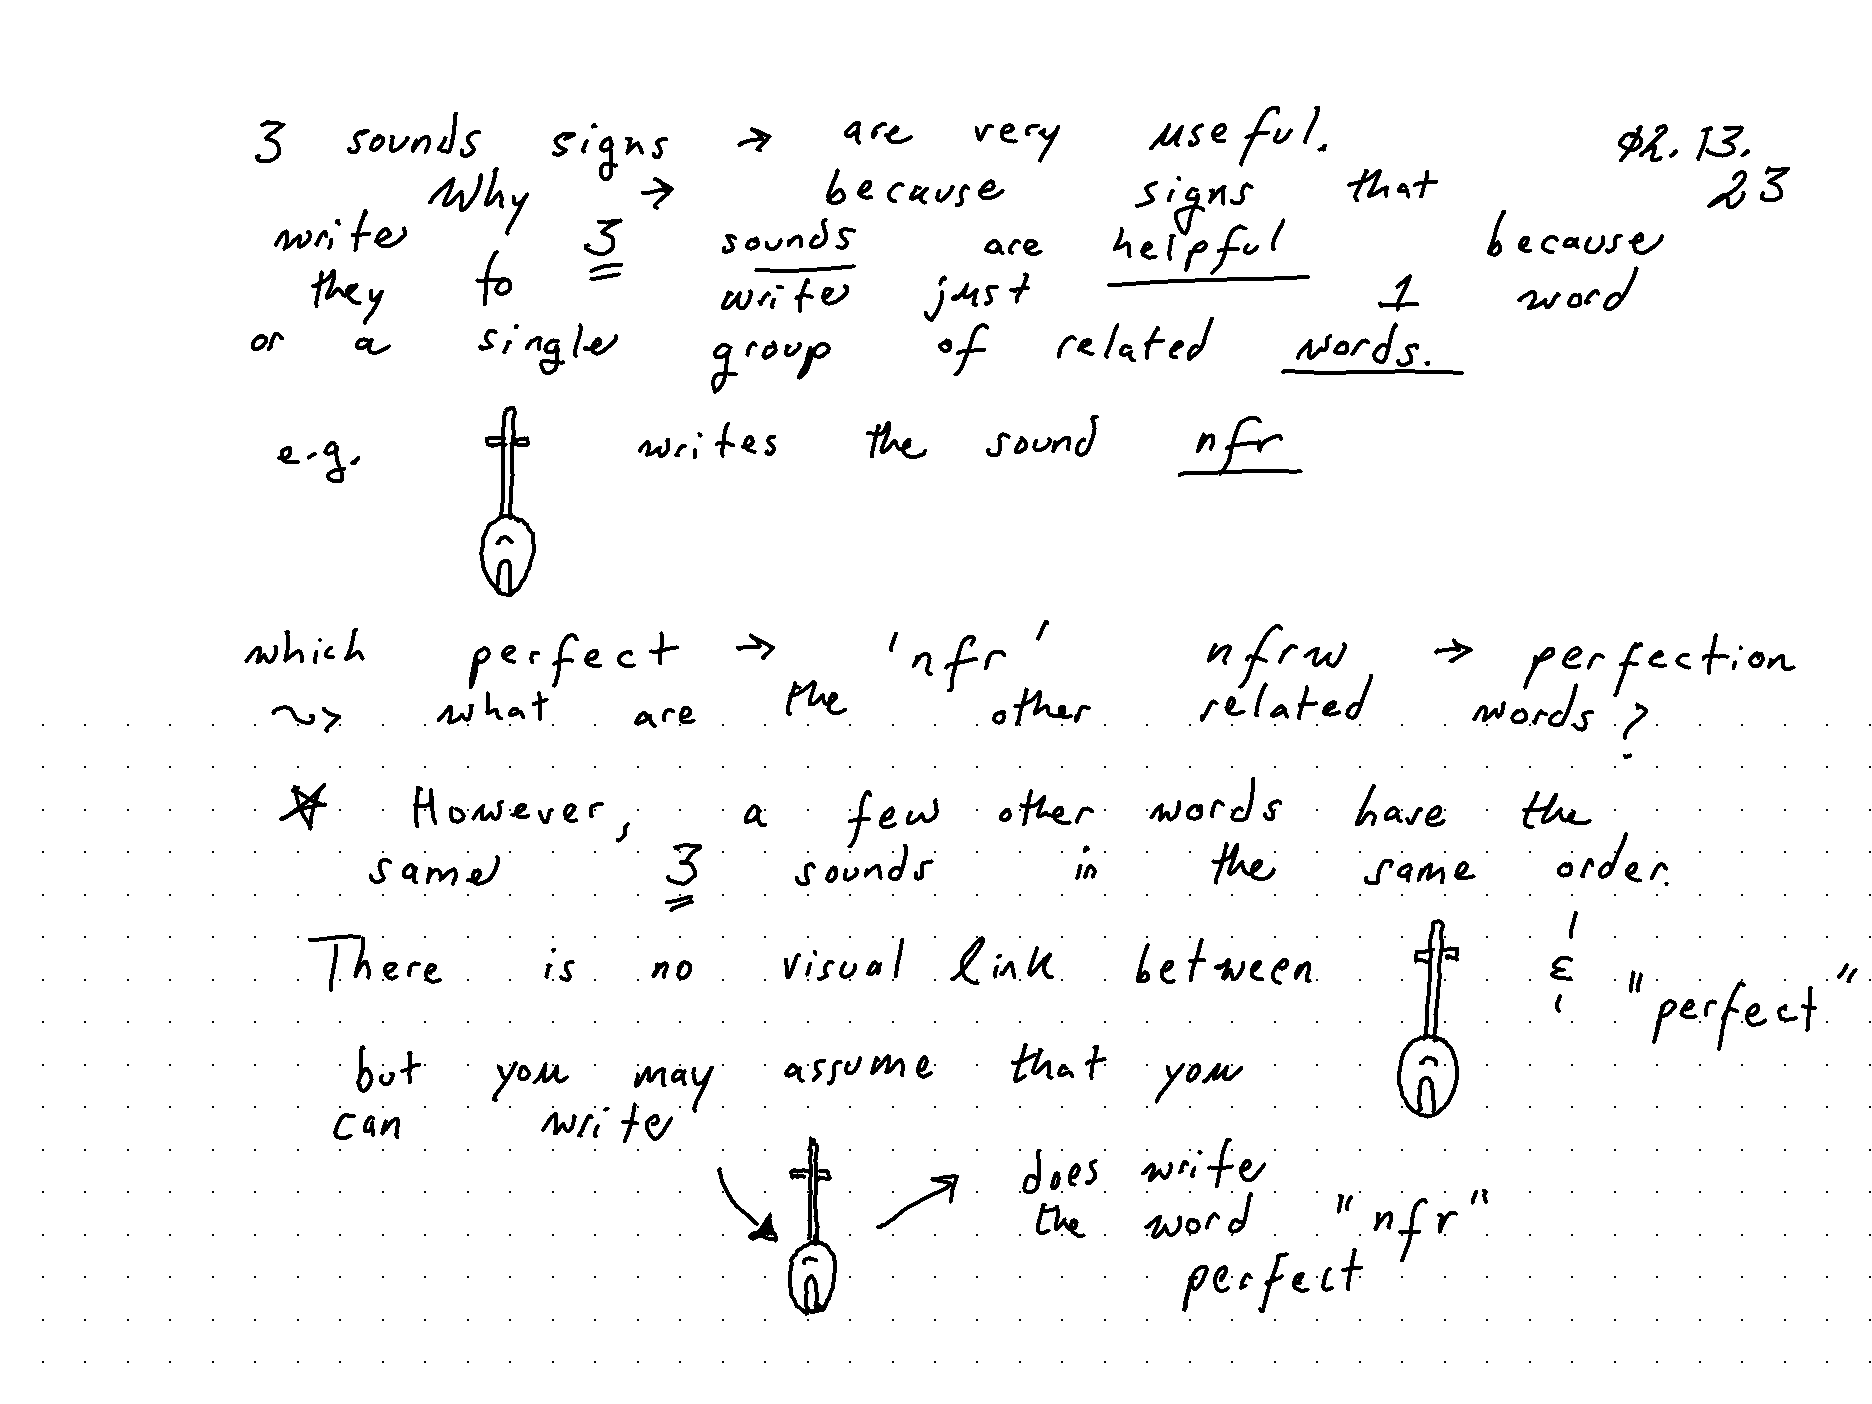 3 sounds signs → are very useful. 02.13.
Why → because signs that 23
write 3 sounds are helpful because
they to write just 1 word
or a single group of related words.
e.g. writes the sound nfr
which perfect → 'nfr' nfrw → perfection
~> what are the other related words?
☆ However, a few other words have the
same 3 sounds in the same order.
There is no visual link between & "perfect"
but you may assume that you
can write
does write
the word "nfr"
perfect